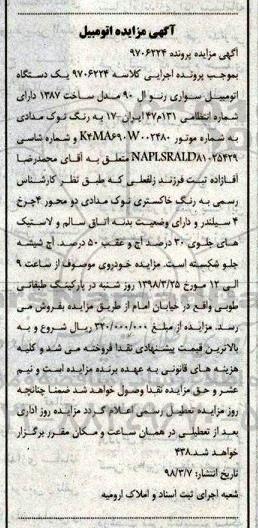 آگهی مزایده اتومبیل
آگهی مزایده پرونده ۹۷۰۶۲۲۴
بموجب پرونده اجرایی کلاسه ۹۷۰۶۲۲۴ یک دستگاه
اتومبیل سواری رنو ال ۹۰ مدل ساخت ۱۳۸۷ دارای
شماره انتظامی ۱۳۱م۴۷ ایران-۱۷ به رنگ نوک مدادی
به شماره موتور K۴MA۶۹۰W۰۰۲۴۸۰ و شماره شاسی
NAPLSRALD۸۱۰۲۵۴۲۹ متعلق به آقای محمدرضا
آقازاده ثبت فرزند زلفعلی که طبق نظر کارشناس
رسمی به رنگ خاکستری نوک مدادی دو محور ۴چرخ
۴ سیلندر و دارای وضعیت بدنه اتاق سالم و لاستیک
های جلوی ۳۰ درصد آج و عقب ۵۰ درصد آج شیشه
جلو شکسته است. مزایده خودروی موصوف از ساعت ۹
الی ۱۲ مورخ ۱۳۹۸/۳/۲۵ روز شنبه در پارکینگ طبقاتی
طوبی واقع در خیابان امام از طریق مزایده بفروش می
رسد. مزایده از مبلغ ۳۲۰/۰۰۰/۰۰۰ ریال شروع و به
بالاترین قیمت پیشنهادی نقدا فروخته می شد و کلیه
هزینه های قانونی به عهده برنده مزایده است و نیم
عشر و حق مزایده نقدا وصول خواهد شد ضمنا چنانچه
روز مزایده تعطیل رسمی اعلام گردد مزایده روز اداری
بعد از تعطیلی در همان ساعت و مکان مقرر برگزار
خواهد شد۴۳۸
تاریخ انتشار: ۹۸/۳/۷
شعبه اجرای ثبت اسناد و املاک ارومیه